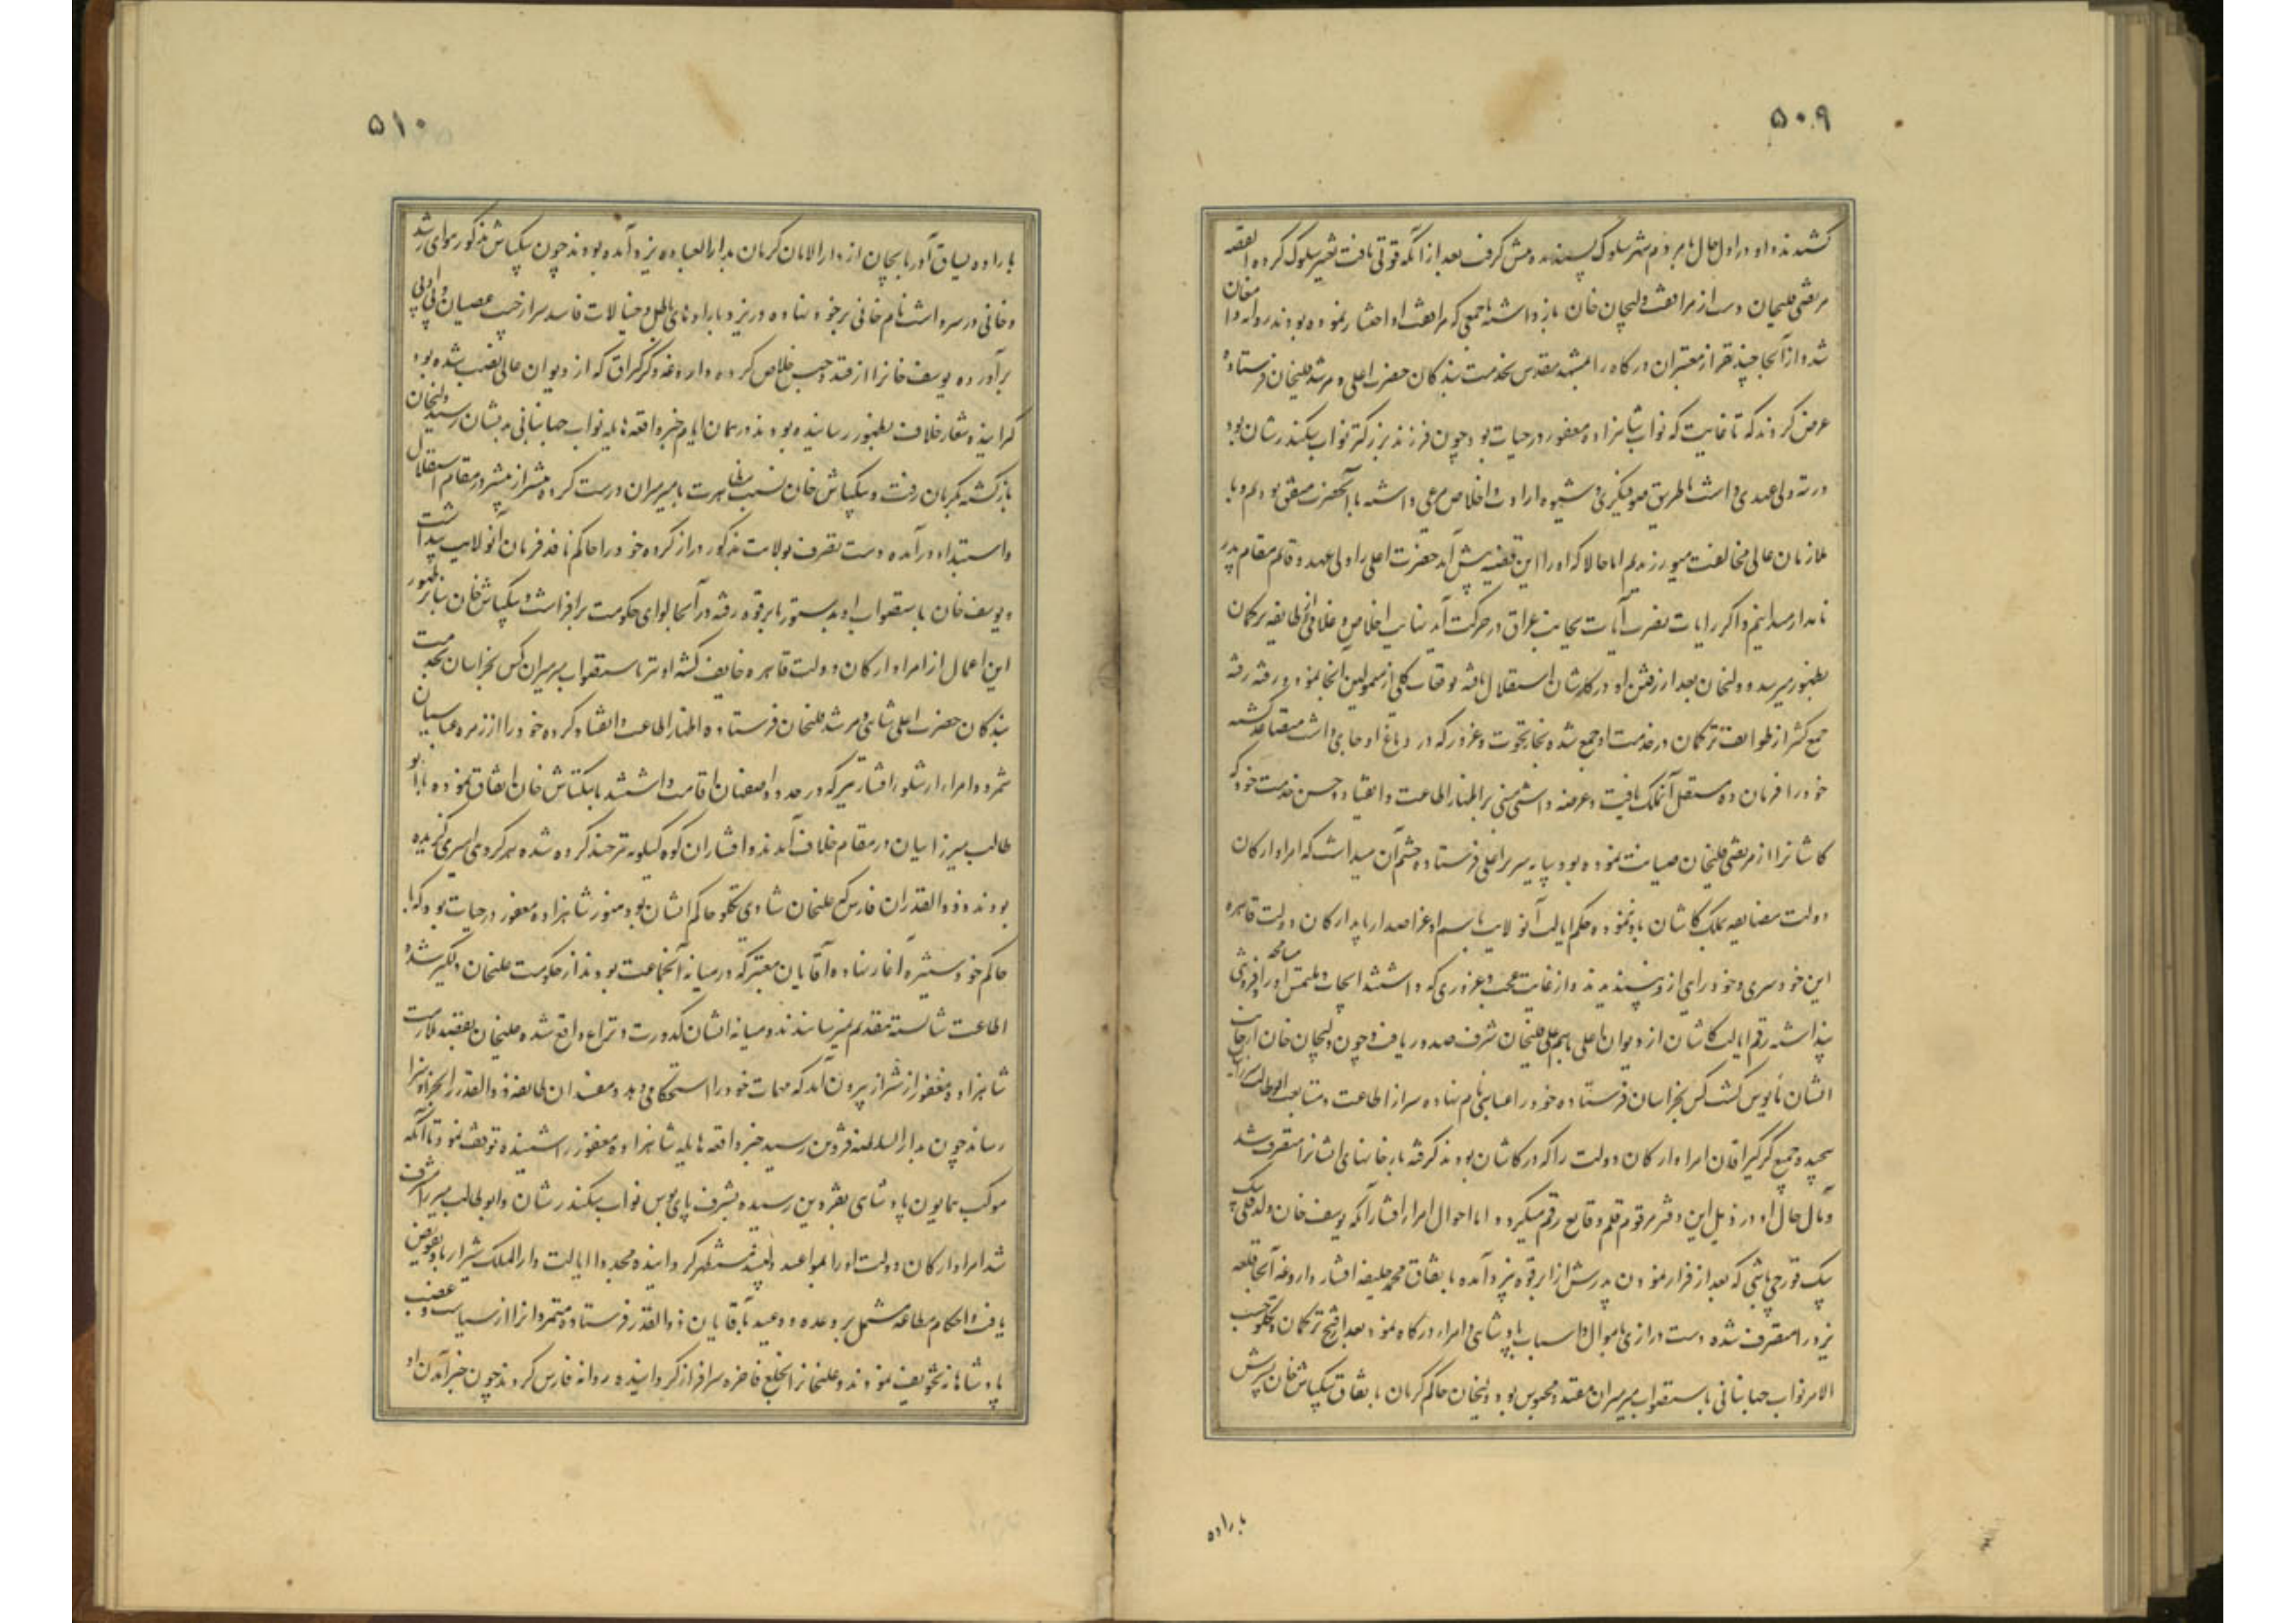 ۵۰۹
گشتند و او در اول حال با مردم شهر سلوک پسندیده پیش گرفت بعد از آنکه قوتی یافت تغییر سلوک کرده القصه
مرتضی قلیخان دست از مرافقت ولیجان خان بازداشته با جمعی که مرافقت او اختیار نموده بودند روانه دامغان
شد و از آنجا چند نفر از معتبران درگاه را بمشهد مقدس بخدمت بندگان حضرت اعلی و مرشد قلیخان فرستاده
عرض کردند که تا غایت که نواب شاهزاده مغفور در حیات بود چون فرزند بزرگتر نواب سکندرشان بود
و رتبه ولی عهدی داشت ما طریق صوفیگری و شیوه ارادت و اخلاص مرعی داشته با آنحضرت متفق بودیم و با
ملازمان عالی مخالفت میورزیدیم اما حالا که او را این قضیه پیش آمد حضرت اعلی را ولی عهد و قائم مقام پدر
نامدار میدانیم و اگر رایات نصرت آیات بجانب عراق در حرکت آید نهایت اخلاص و غلامی از طایفه ترکمان
بظهور میرسد و ولیخان بعد از رفتن او در کاشان استقلال یافته توقعات کلی از متمولین آنجا نمود و رفته رفته
جمع کثیر از طوایف ترکمان در خدمت او جمع شده بخار نخوت و غرور که در دماغ او جای داشت متصاعد گشته
خود را فرمان ده مستقل آنملک یافت و عرضه داشتی مبنی بر اظهار اطاعت و انقیاد و حسن خدمت خود که
کاشانرا از مرتضی قلیخان صیانت نموده بود بپایه سریر اعلی فرستاده چشم آن میداشت که امرا و ارکان
دولت مضایقه ملک کاشان باو ننموده حکم ایالت آنولایت باسم او عز اصدار یابد ارکان دولت قاهره
این خودسری و خودرایی از او نپسندیدند و از غایت عجب و غروری که داشتند انجاح ملتمس او را مسامحه و فروتنی
پنداشته رقم ایالت کاشان از دیوان اعلی باسم علی قلیخان شرف صدور یافت و چون ولیجان خان از جانب
ایشان مأیوس گشت کس بخراسان فرستاده خود را عباسی نام نهاده سر از اطاعت و متابعت ابوطالب میرزا
پیچیده جمیع کرکیراقان امرا و ارکان دولت را که در کاشان بودند گرفته بارخانهای ایشانرا متصرف شد
و مآل حال او در ذیل این دفتر مرقوم قلم وقایع رقم میگردد اما احوال امراء افشار آنکه یوسف خان ولد قلی بیک
بیک قورچی باشی که بعد از فرار نمودن پدرش از ابرقوه به یزد آمده باتفاق محمد خلیفه افشار داروغه آنجا قلعه
یزد را متصرف شده دست درازی باموال و اسباب پادشاهی و امراء درگاه نمود بعد از فتح ترکمان و تکلو حسب
الامر نواب جهانبانی باستصواب میرمیران مقید و محبوس بود و ولیخان حاکم کرمان باتفاق بیکتاش خان پسرش
باراده
۵۱۰
باراده یساق آذربایجان از دارالامان کرمان بدارالعباده یزد آمده بودند چون بیکتاش مذکور هوای رشد
و خانی در سر داشت نام خانی بر خود نهاده در یزد باراده های باطل و خیالات فاسد سر از جیب عصیان و بی ادبی
برآورده یوسف خانرا از قید و حبس خلاص کرده داروغه و کرکراق که از دیوان عالی نصب شده بود
گرانیده شعار خلاف بظهور رسانیده بودند در همان ایام خبر واقعه هایله نواب جهانبانی بدیشان رسید ولیخان
بازگشته بکرمان رفت و بیکتاش خان نسبت مظاهرت با میرمیران درست کرده بیشتر از پیشتر در مقام استقلال
و استبداد درآمده دست تصرف بولایت مذکور دراز کرده خود را حاکم نافذ فرمان آنولایت پنداشت
و یوسف خان باستصواب او بدستور بابرقوه رفته در آنجا لوای حکومت برافراشت و بیکتاش خان بنابر ظهور
این اعمال از امرا و ارکان دولت قاهره خایف گشته او نیز باستصواب میرمیران کس بخراسان بخدمت
بندگان حضرت اعلی شاهی و مرشد قلیخان فرستاده اظهار اطاعت و انقیاد کرده خود را از زمره عباسیان
شمرد و امراء ارشلو افشار نیز که در حدود اصفهان اقامت داشتند با بیکتاش خان اتفاق نموده با ابو
طالب میرزاییان در مقام خلاف آمدند و افشاران کوه کیلویه نیز چند گروه شده هر گروهی امیری گزیده
بودند و ذوالقدران فارس که علیخان شادی تکلو حاکم ایشان بود هنوز شاهزاده مغفور در حیات بود که با
حاکم خود ستیزه آغاز نهاده آقایان معتبر که در میانه آنجماعت بودند از حکومت علیخان دلگیر شده
اطاعت شایسته بتقدیم نمیرسانیدند و میانه ایشان کدورت و نزاع واقع شده علیخان بقصد ملازمت
شاهزاده مغفور از شیراز بیرون آمد که مهمات خود را استحکامی دهد و مفسدان طایفه ذوالقدر را بجزا و سزا
رساند چون بدارالسلطنه قزوین رسید خبر واقعه هایله شاهزاده مغفور را شنیده توقف نمود تا آنکه
موکب همایون پادشاهی بقزوین رسیده بشرف پای بوس نواب سکندرشان و ابوطالب میرزا مشرف
شد امرا و ارکان دولت او را بمواعید دلپسند مستظهر گردانیده مجددا ایالت دارالملک شیراز باو تفویض
یافت و احکام مطاعه مشتمل بر وعده و وعید بآقایان ذوالقدر فرستاده متمردانرا از سیاست و غضب
پادشاهانه تخویف نمودند و علیخانرا بخلع فاخره سرافراز گردانیده روانه فارس کردند چون خبر آمدن او